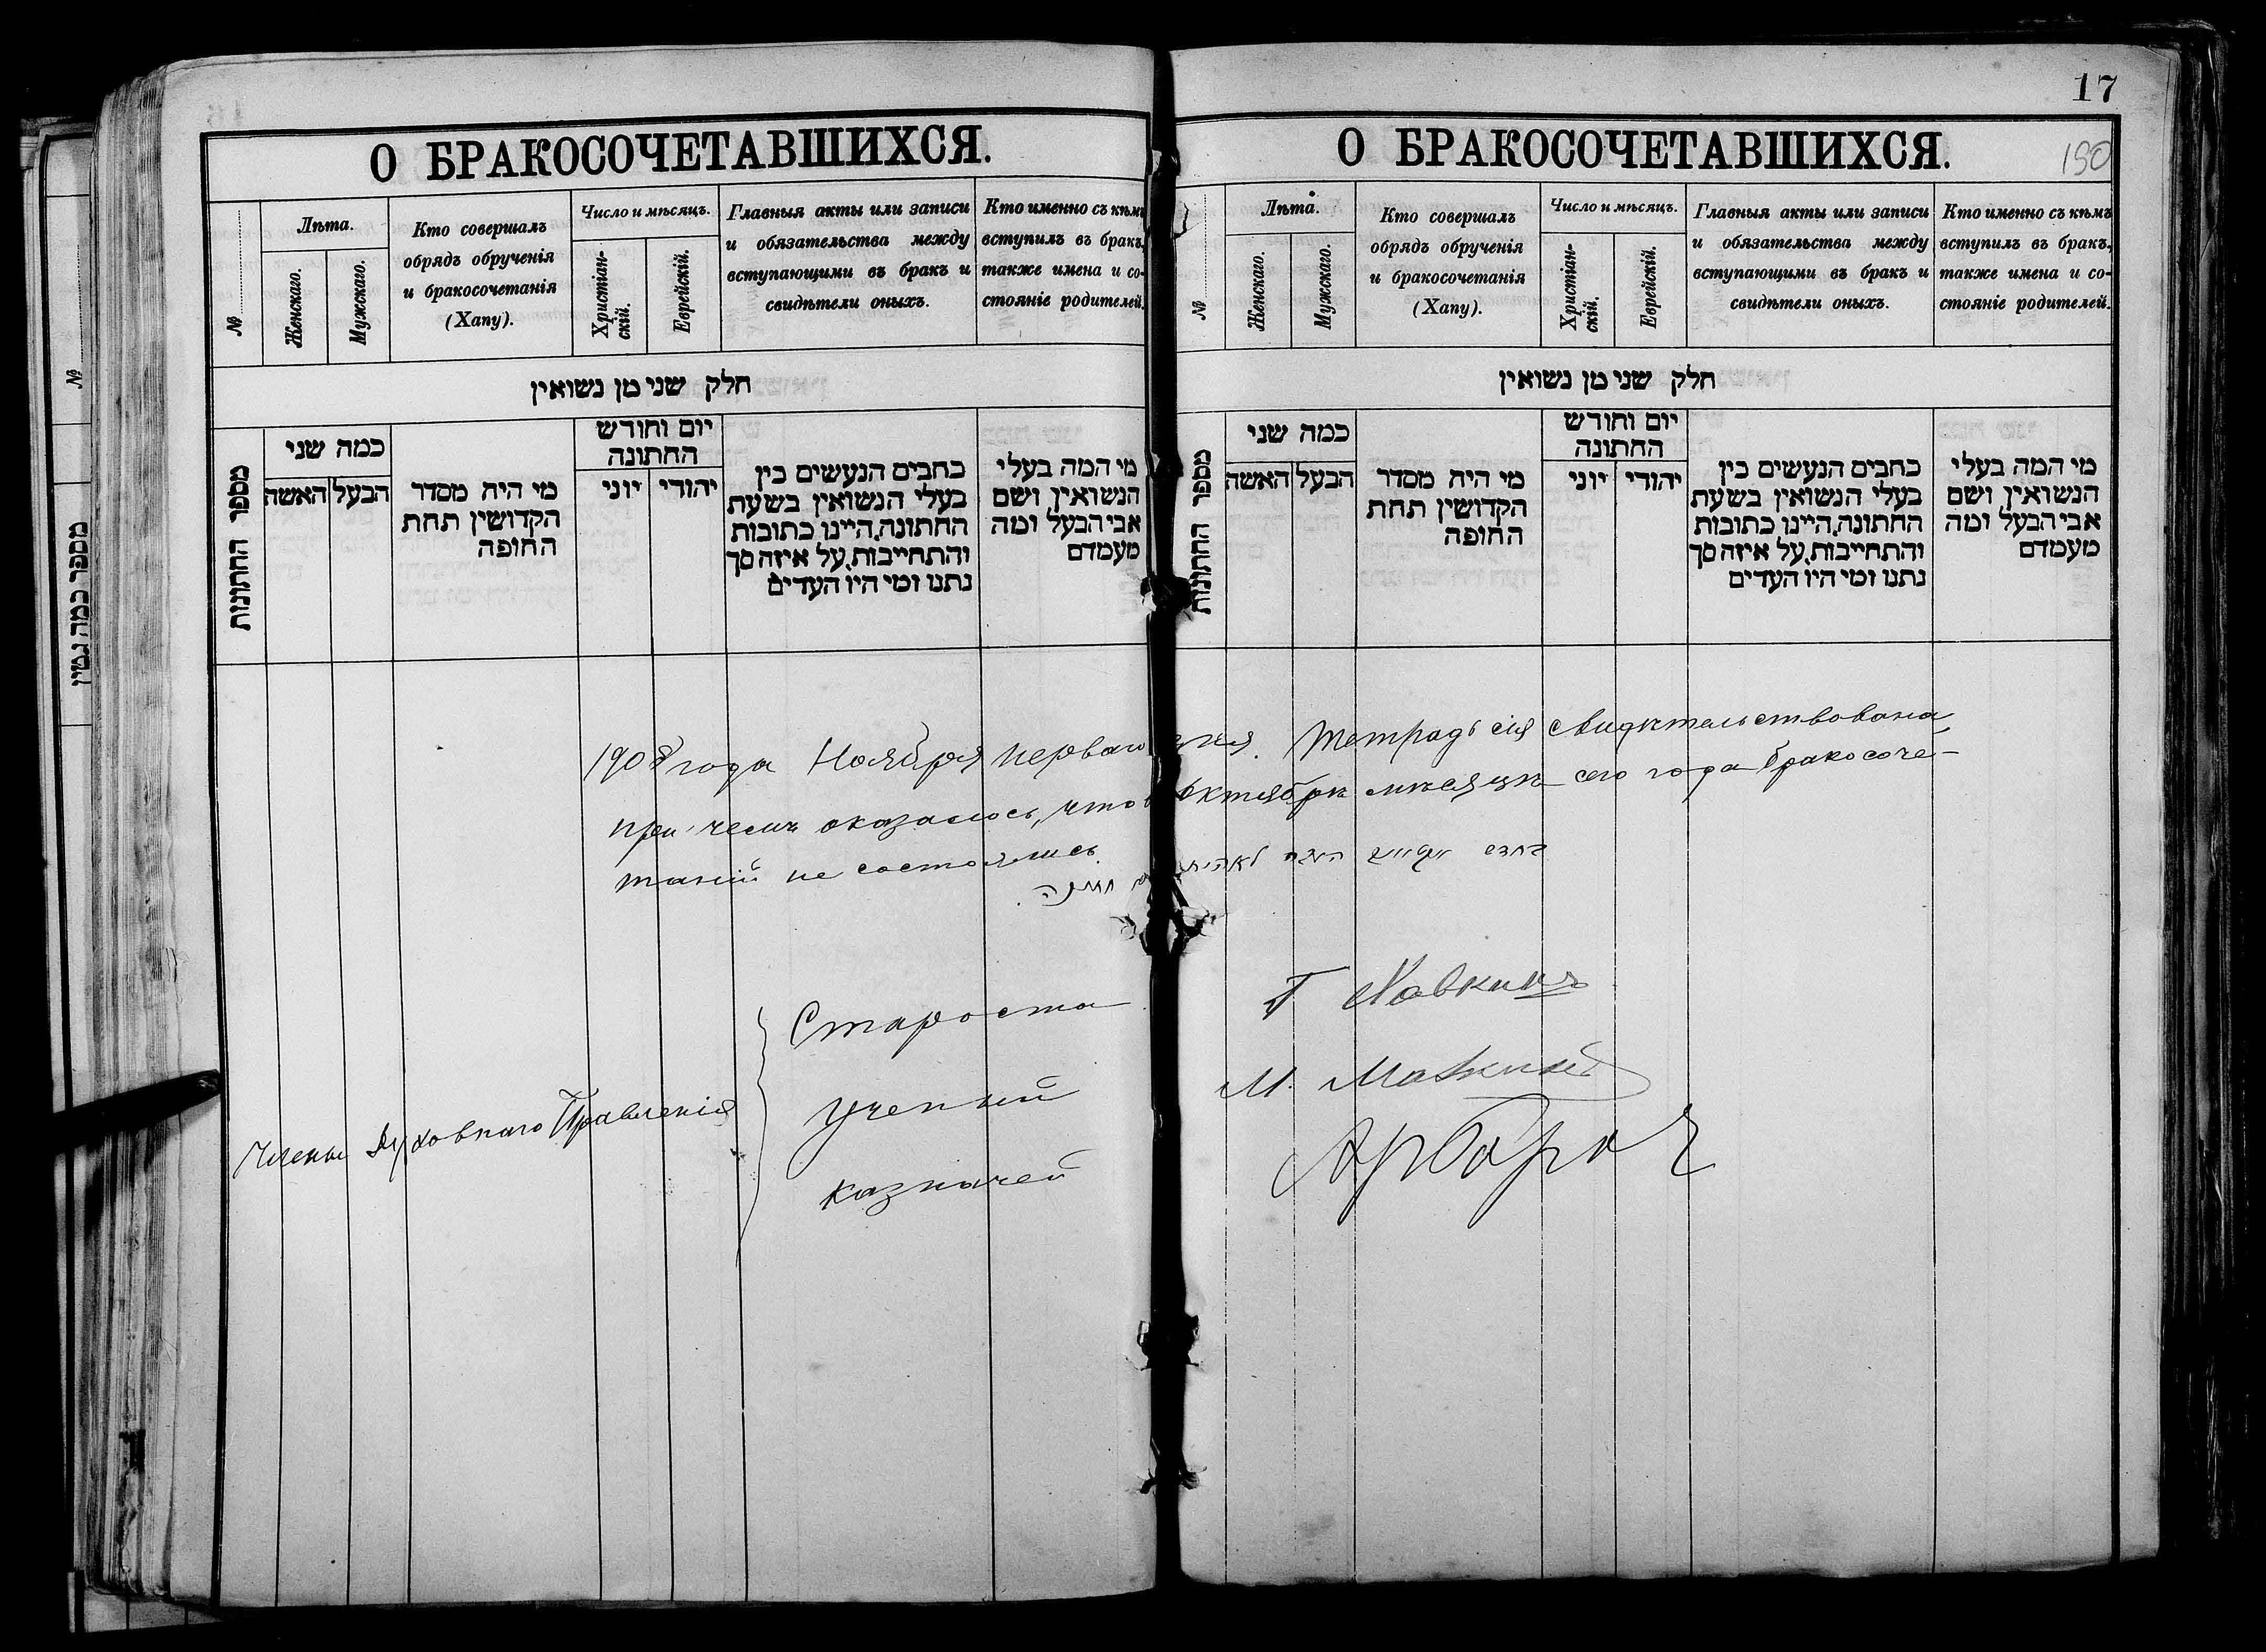 О БРАКОСОЧЕТАВШИХСЯ.
№
Лѣта.
Женскаго.
Мужскаго.
Кто совершалъ
обрядъ обрученія
и бракосочетанія
(Хапу).
Число и мѣсяцъ.
Христіан-
скій.
Еврейскій.
Главныя акты или записи
и обязательства между
вступающими въ бракъ и
свидѣтели оныхъ.
Кто именно съ кѣмъ
вступилъ въ бракъ,
также имена и со-
стояніе родителей.
חלק שני מן נשואין
מספר החתונות
כמה שני
הבעל האשה
מי היה מסדר
הקדושין תחת
החופה
יום וחודש
החתונה
יהודי יוני
כתבים הנעשים בין
בעלי הנשואין בשעת
החתונה, היינו כתובות
והתחייבות, על איזה סך
נתנו ומי היו העדים
מי המה בעלי
הנשואין ושם
אבי הבעל ומה
מעמדם
17
О БРАКОСОЧЕТАВШИХСЯ.
190
№
Лѣта.
Женскаго.
Мужскаго.
Кто совершалъ
обрядъ обрученія
и бракосочетанія
(Хапу).
Число и мѣсяцъ.
Христіан-
скій.
Еврейскій.
Главныя акты или записи
и обязательства между
вступающими въ бракъ и
свидѣтели оныхъ.
Кто именно съ кѣмъ
вступилъ въ бракъ,
также имена и со-
стояніе родителей.
חלק שני מן נשואין
מספר החתונות
כמה שני
הבעל האשה
מי היה מסדר
הקדושין תחת
החופה
יום וחודש
החתונה
יהודי יוני
כתבים הנעשים בין
בעלי הנשואין בשעת
החתונה, היינו כתובות
והתחייבות, על איזה סך
נתנו ומי היו העדים
מי המה בעלי
הנשואין ושם
אבי הבעל ומה
מעמדם
1908 года Ноября перваго дня. Тетрадь сія свидѣтельствована,
при чемъ оказалось, что в Октябрѣ мѣсяцѣ сего года бракосоче-
таній не состоялись.
בחדש הזה לא היה חתונה.
Члены Духовнаго Правленія
Староста Г Хавкинъ
Ученый М.
Казначей
№
מספר כמה גטין